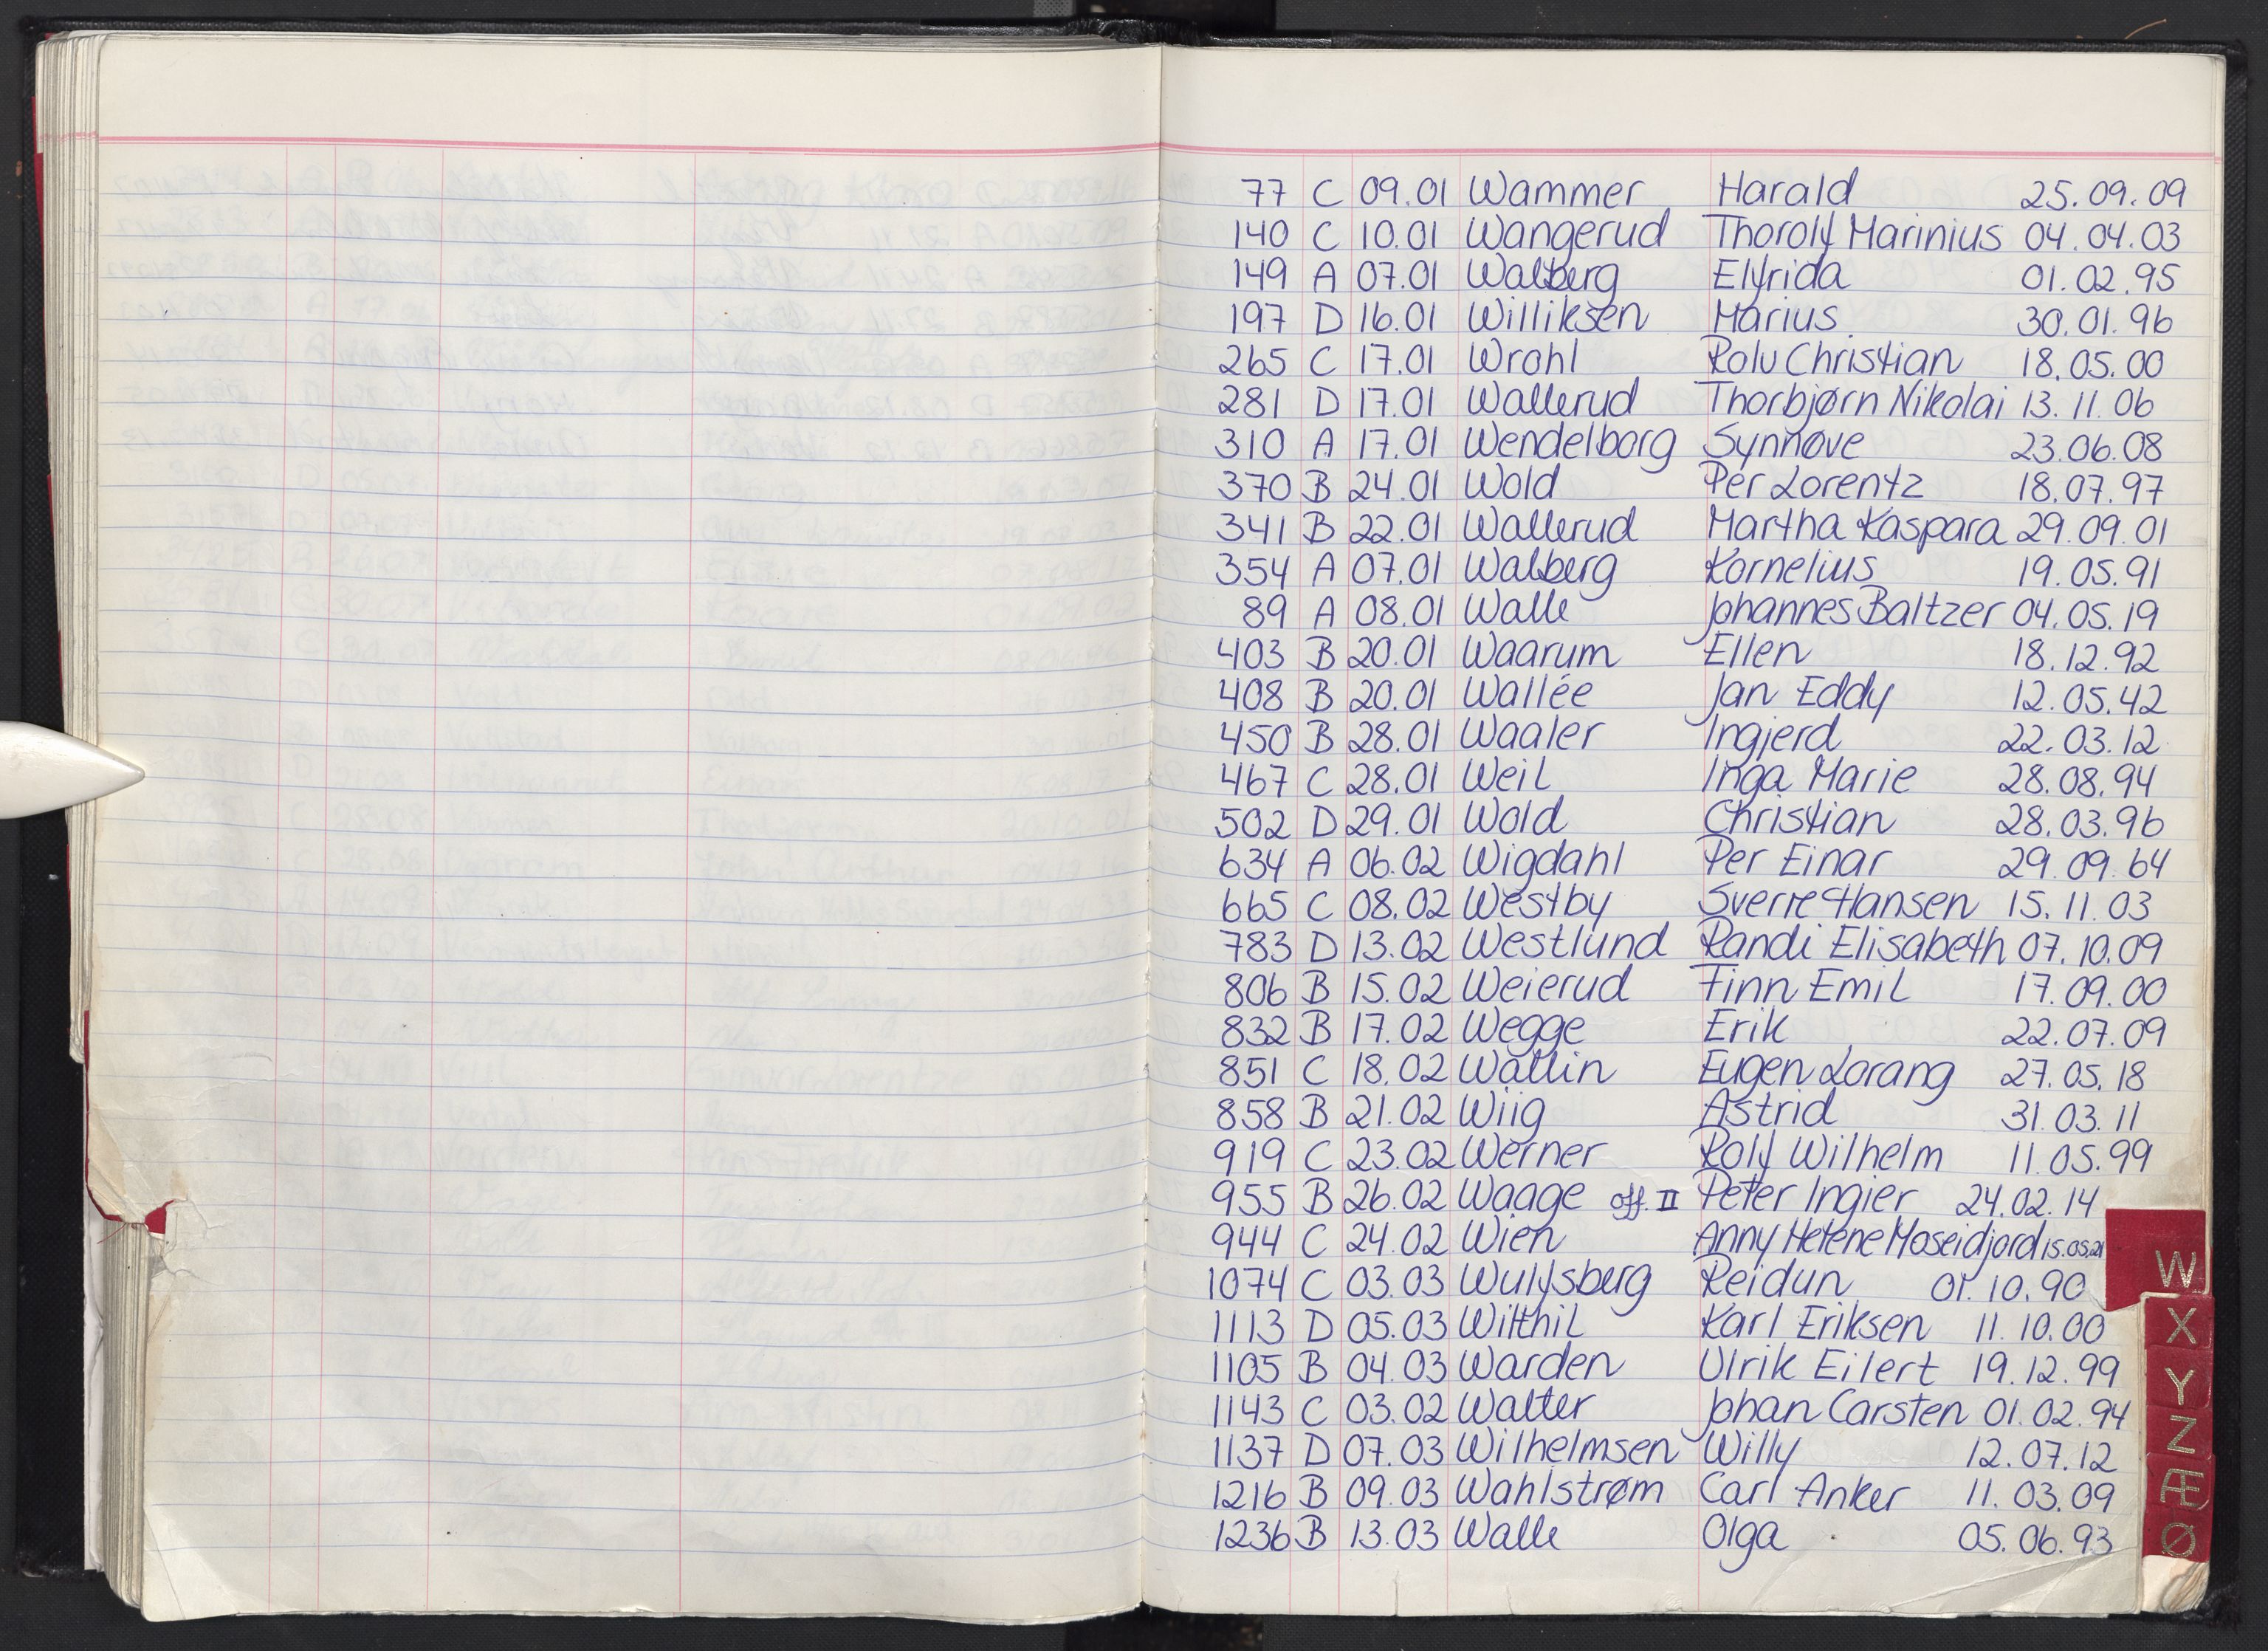 77 C 09.01 Wammer Harald 25.09.09
140 C 10.01 Wangerud Thorolf Marinius 04.04.03
149 A 07.01 Walberg Elfrida 01.02.95
197 D 16.01 Williksen Marius 30.01.96
265 C 17.01 Wrohl Rolv Christian 18.05.00
281 D 17.01 Wallerud Thorbjørn Nikolai 13.11.06
310 A 17.01 Wendelborg Synnøve 23.06.08
370 B 24.01 Wold Per Lorentz 18.07.97
341 B 22.01 Wallerud Martha Kaspara 29.09.01
354 A 07.01 Walberg Kornelius 19.05.91
89 A 08.01 Walle Johannes Baltzer 04.05.19
403 B 20.01 Waarum Ellen 18.12.92
408 B 20.01 Wallée Jan Eddy 12.05.42
450 B 28.01 Waaler Ingjerd 22.03.12
467 C 28.01 Weil Inga Marie 28.08.94
502 D 29.01 Wold Christian 28.03.96
634 A 06.02 Wigdahl Per Einar 29.09.64
665 C 08.02 Westby Sverre Hansen 15.11.03
783 D 13.02 Westlund Randi Elisabeth 07.10.09
806 B 15.02 Weierud Finn Emil 17.09.00
832 B 17.02 Wegge Erik 22.07.09
851 C 18.02 Wallin Eugen Lorang 27.05.18
858 B 21.02 Wiig Astrid 31.03.11
919 C 23.02 Werner Rolf Wilhelm 11.05.99
955 B 26.02 Waage off. II Peter Ingier 24.02.14
944 C 24.02 Wien Anny Helene Moseidjord 15.05.21
1074 C 03.03 Wulfsberg Reidun 01.10.90
1113 D 05.03 Wilthil Karl Eriksen 11.10.00
1105 B 04.03 Warden Ulrik Eilert 19.12.99
1143 C 03.02 Walter Johan Carsten 01.02.94
1137 D 07.03 Wilhelmsen Willy 12.07.12
1216 B 09.03 Wahlstrøm Carl Anker 11.03.09
1236 B 13.03 Walle Olga 05.06.93
W
X
Y
Z
Æ
Ø